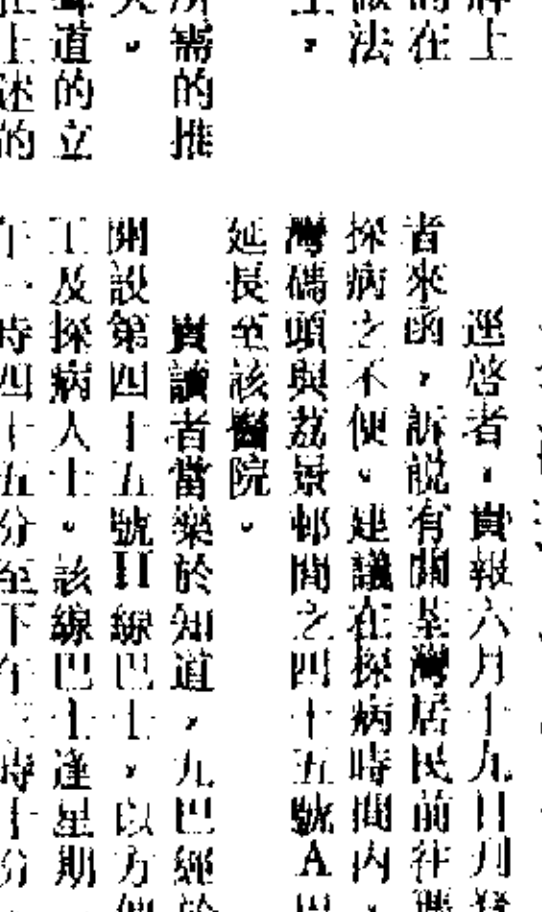 上
的在
做法
所需的推
聲道的立
上述的
逕啓者，貴報六月十九日刊登
者來函，訴說有關荃灣居民前往瑪
探病之不便。建議在探病時間內，
灣碼頭與荔景邨間之四十五號A巴
延長至該醫院。
貴讀者當樂於知道，九巴經於
開設第四十五號H線巴士，以方便
工及探病人士。該線巴士逢星期
午一時四十五分至下午三時十分，